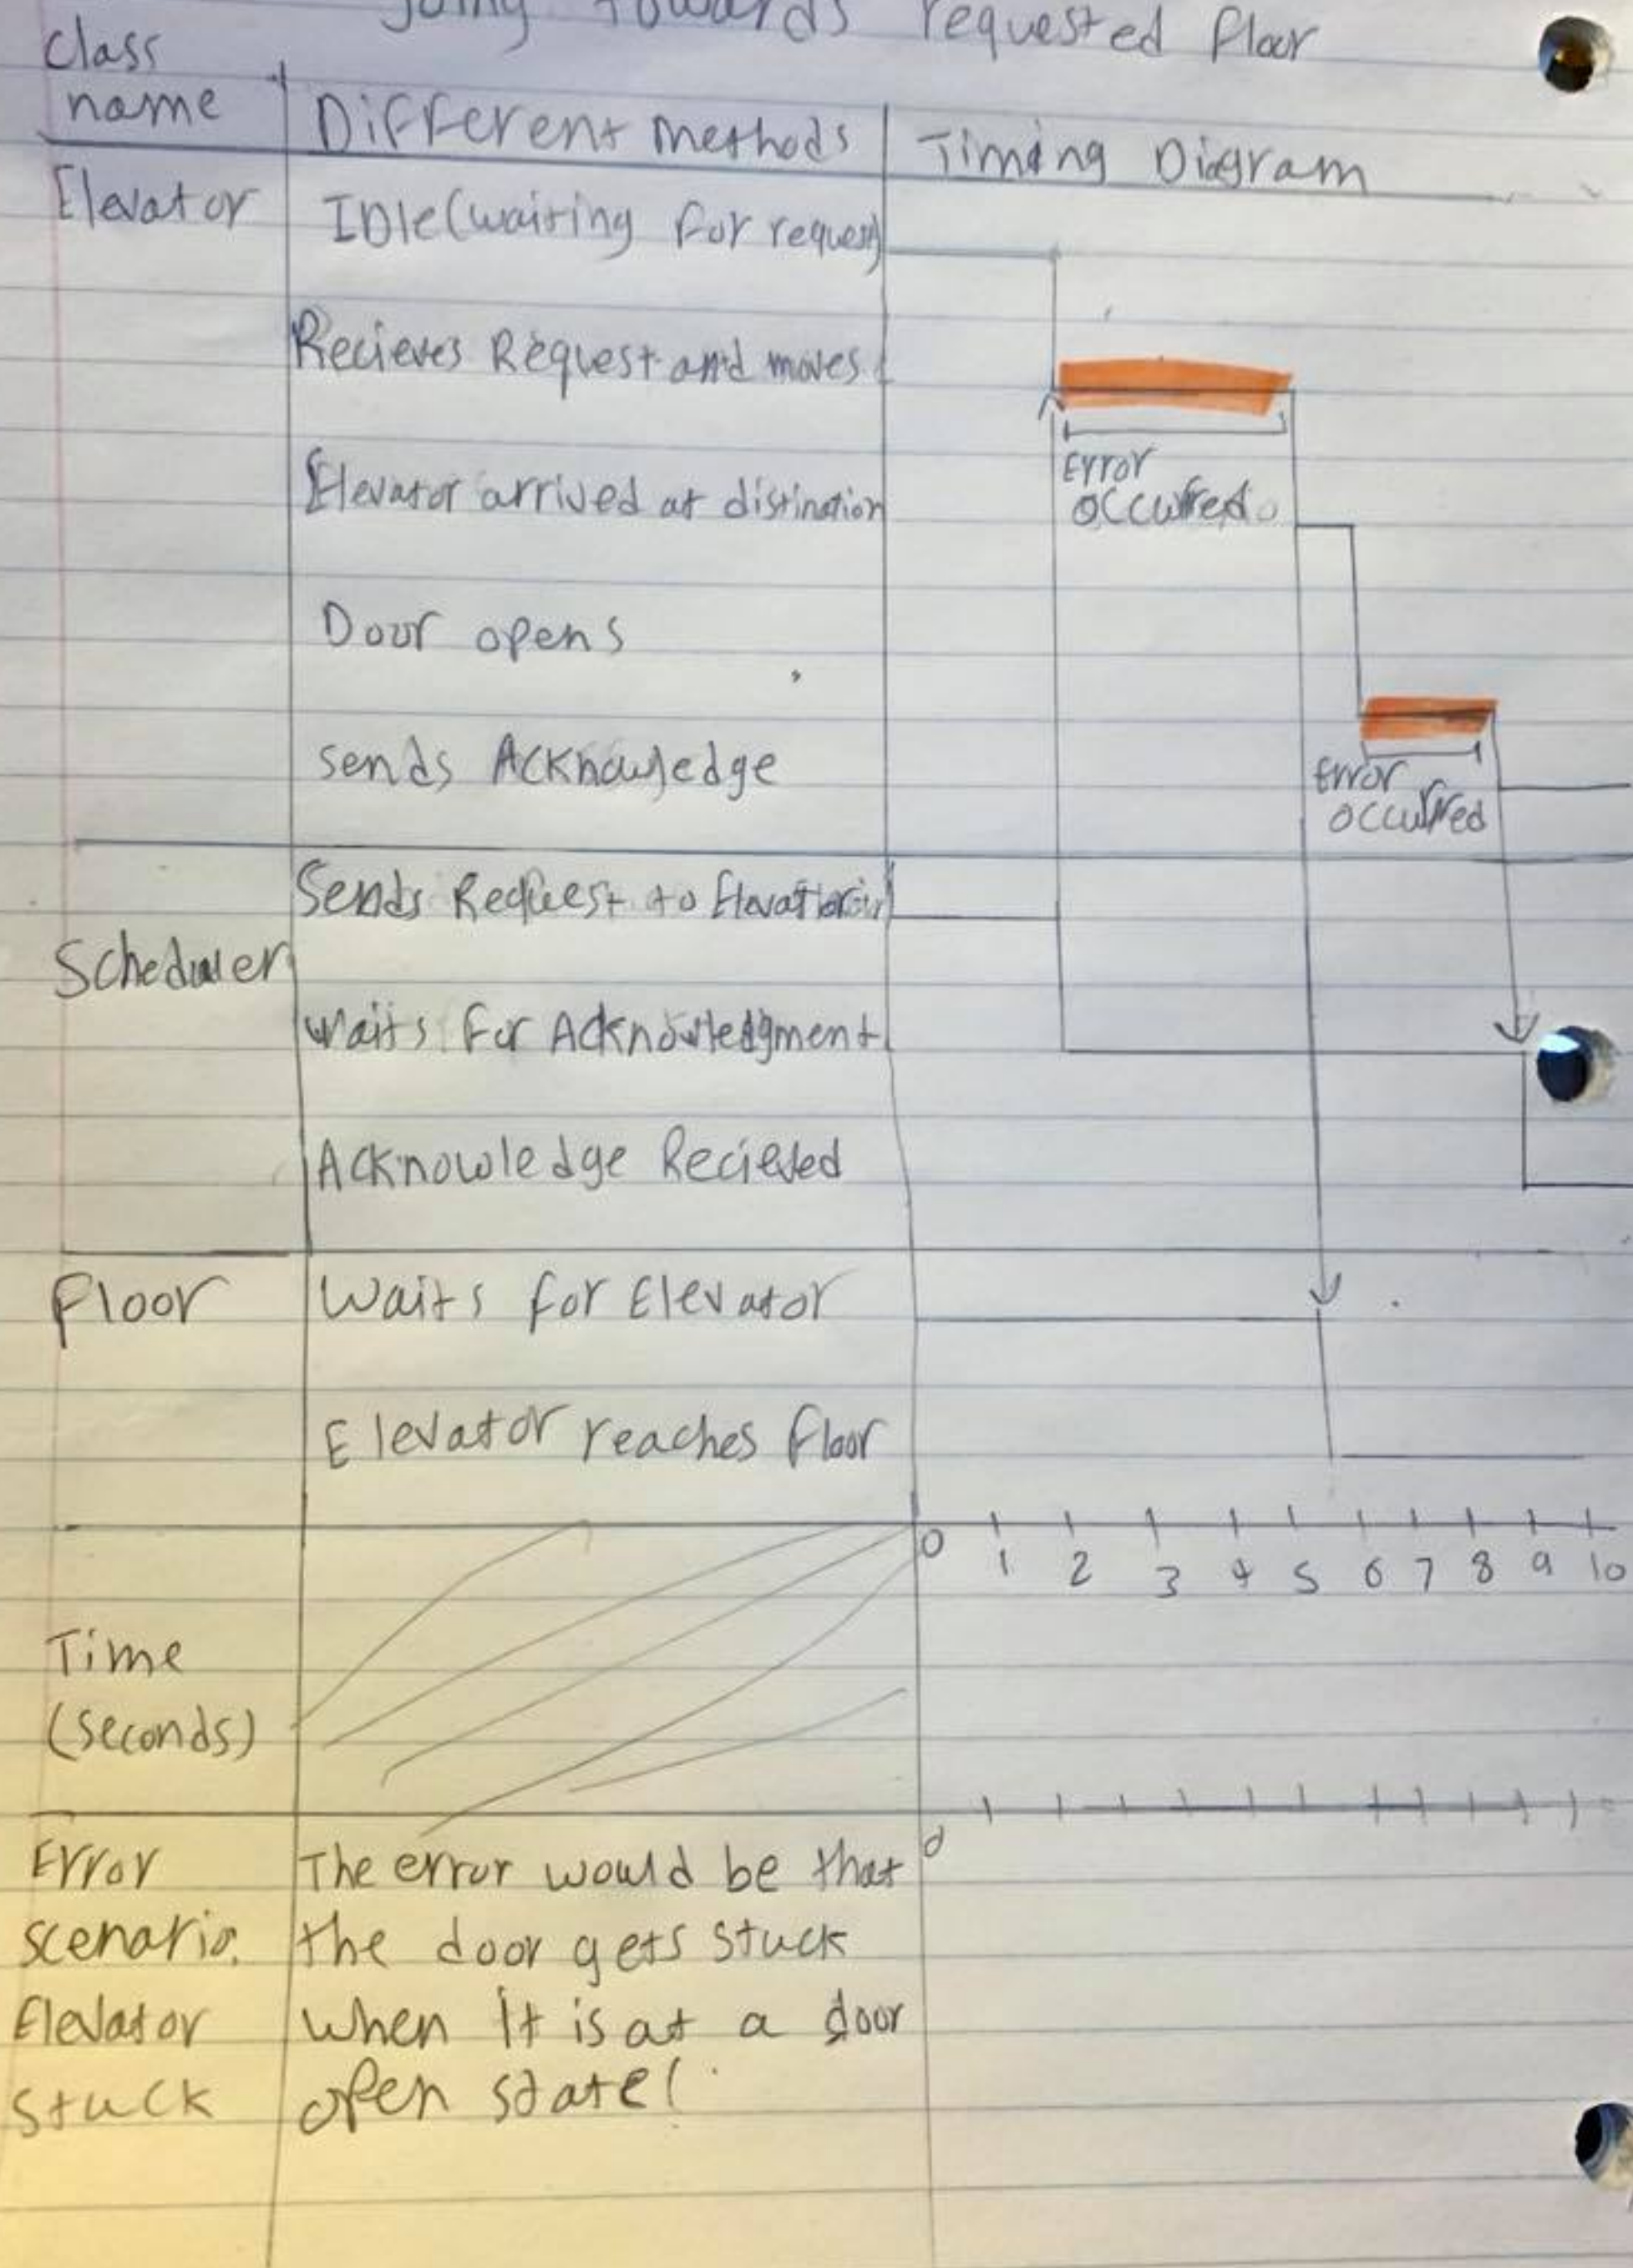 going towards requested floor
Class
name
Different methods
Timing Diagram
Elevator
IDle (waiting for request)
Recieves Request and moves
Elevator arrived at distination
Door opens
sends Acknowledge
Error
occurred
Error
occurred
Scheduler
Sends Request to Elevator
Waits For Acknowledgment
Acknowledge Recieved
Floor
Waits for Elevator
Elevator reaches floor
0 1 2 3 4 5 6 7 8 9 10
Time
(seconds)
0
Error
scenario.
Elevator
stuck
The error would be that
the door gets stuck
when it is at a door
open state(